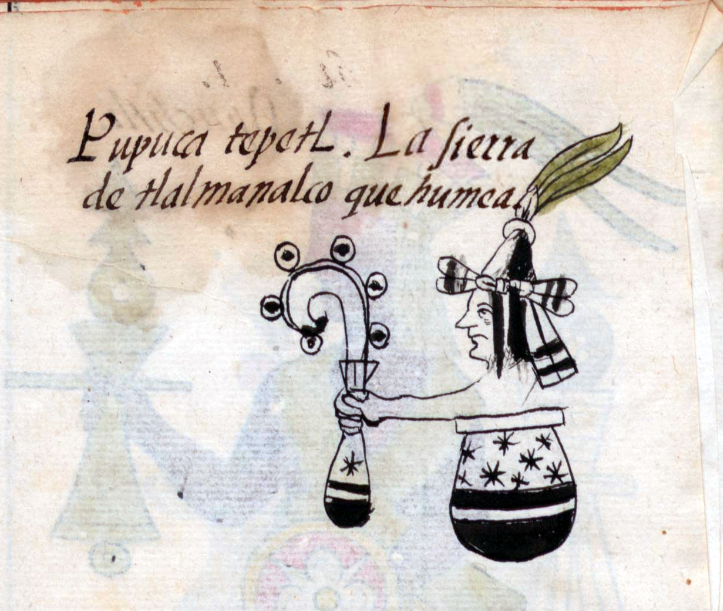 Pupuca tepetl. La sierra
de tlalmanalco que humea.